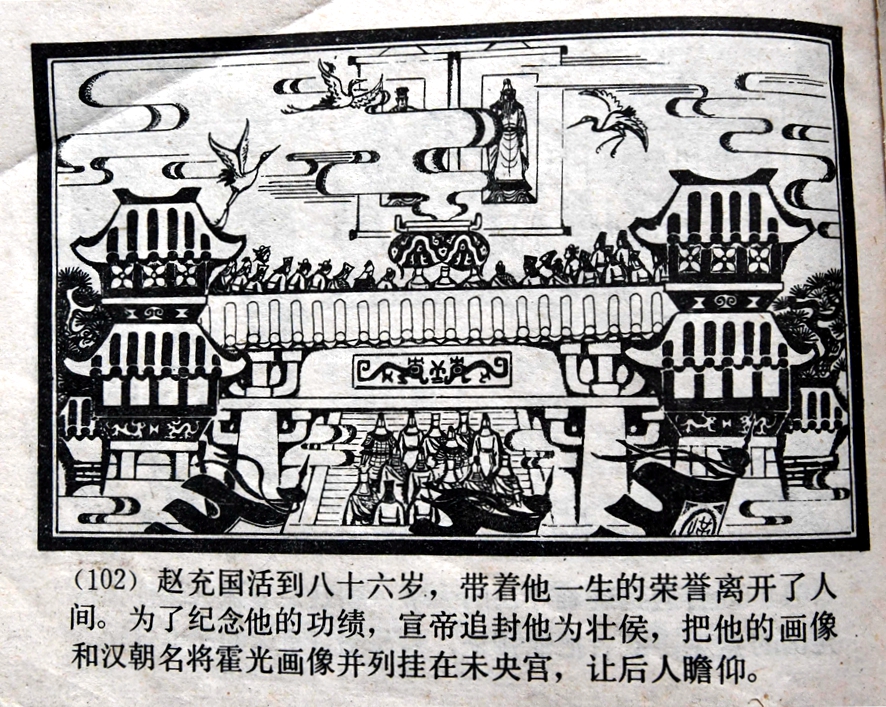 （102）赵充国活到八十六岁，带着他一生的荣誉离开了人
间。为了纪念他的功绩，宣帝追封他为壮侯，把他的画像
和汉朝名将霍光画像并列挂在未央宫，让后人瞻仰。